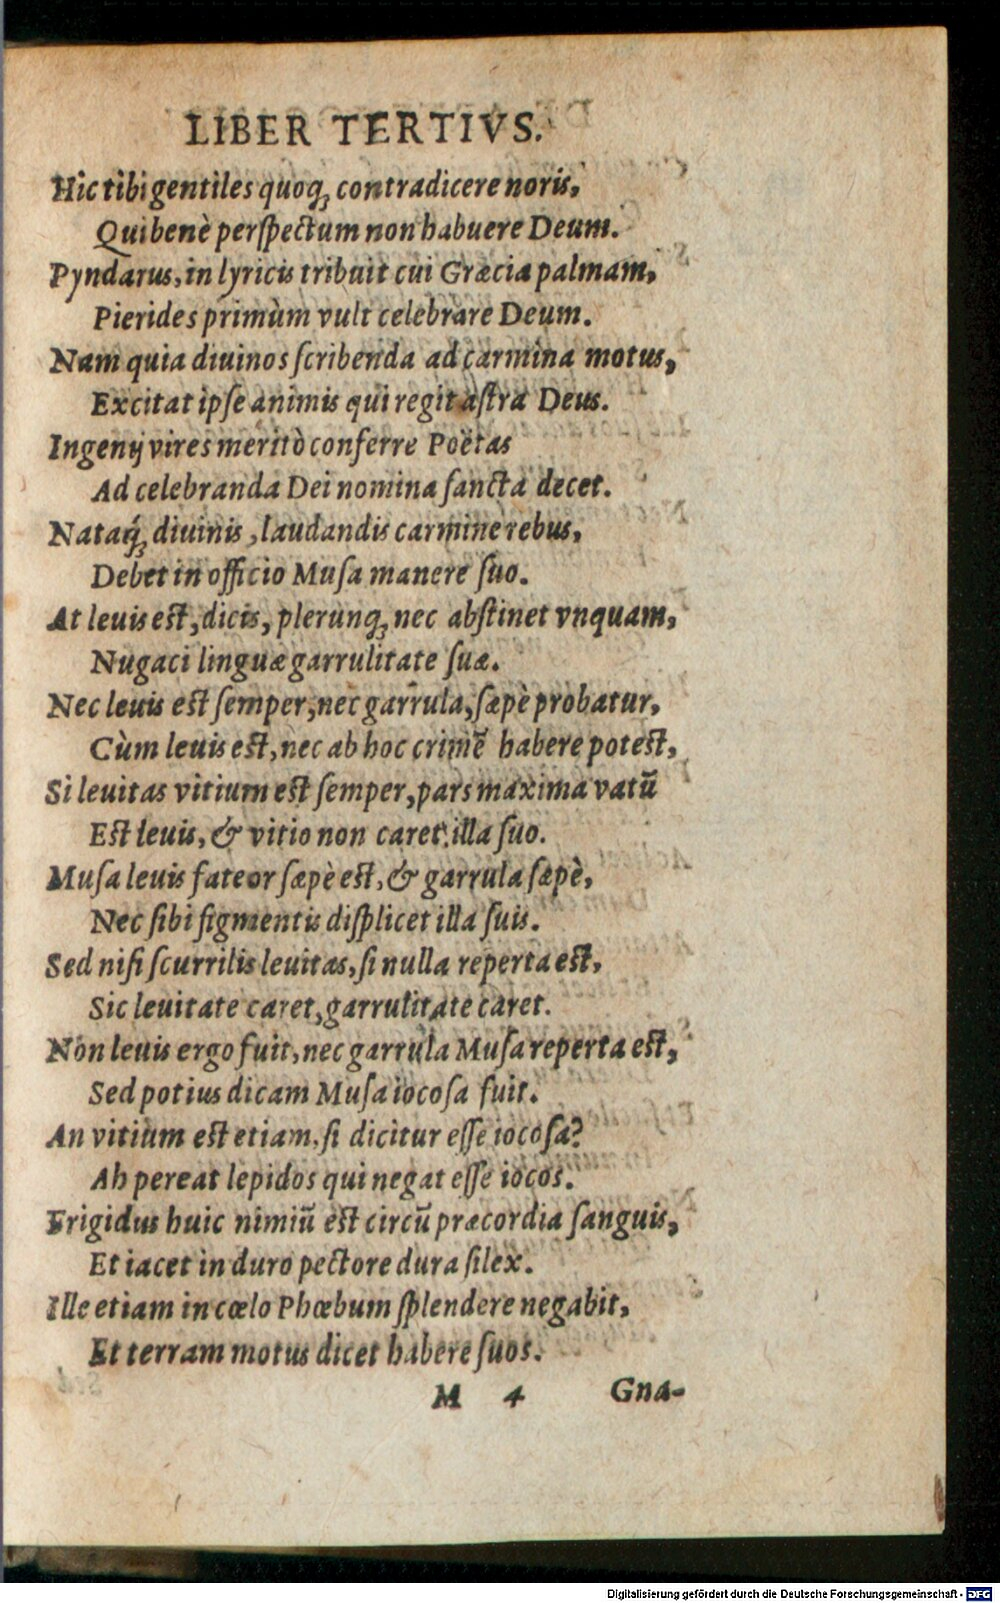 LIBER TERTIVS.
Hic tibi gentiles quoq; contradicere noris,
Qui benè perſpectum non habuere Deum.
Pyndarus, in lyricis tribuit cui Græcia palmam,
Pierides primùm vult celebrare Deum.
Nam quia diuinos ſcribenda ad carmina motus,
Excitat ipſe animis qui regit aſtra Deus.
Ingenij vires meritò conferre Poëtas
Ad celebranda Dei nomina ſancta decet.
Nataq́; diuinis, laudandis carmine rebus,
Debet in officio Muſa manere ſuo.
At leuis eſt, dicis, plerunq; nec abſtinet vnquam,
Nugaci linguæ garrulitate ſuæ.
Nec leuis eſt ſemper, nec garrula, ſæpè probatur,
Cùm leuis eſt, nec ab hoc crimē habere poteſt,
Si leuitas vitium eſt ſemper, pars maxima vatū
Eſt leuis, & vitio non caret illa ſuo.
Muſa leuis fateor ſæpè eſt, & garrula ſæpè,
Nec ſibi figmentis diſplicet illa ſuis.
Sed niſi ſcurrilis leuitas, ſi nulla reperta eſt,
Sic leuitate caret, garrulitate caret.
Non leuis ergo fuit, nec garrula Muſa reperta eſt,
Sed potius dicam Muſa iocoſa fuit.
An vitium eſt etiam, ſi dicitur eſſe iocoſa?
Ah pereat lepidos qui negat eſſe iocos.
Frigidus huic nimiū eſt circū præcordia ſanguis,
Et iacet in duro pectore dura ſilex.
Ille etiam in cœlo Phœbum ſplendere negabit,
Et terram motus dicet habere ſuos.
M 4 Gna-
Digitalisierung gefördert durch die Deutsche Forschungsgemeinschaft - DFG